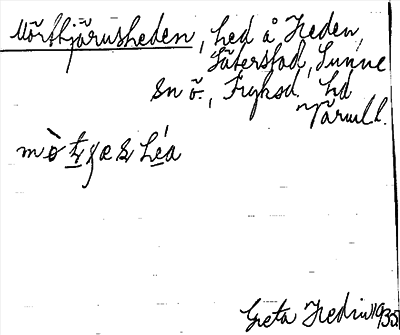 Mörttjärnsheden, hed å Heden,
Säterstad, Sunne
sn ö., Fryksd. hd
Värml.
Greta Hedin 1935.